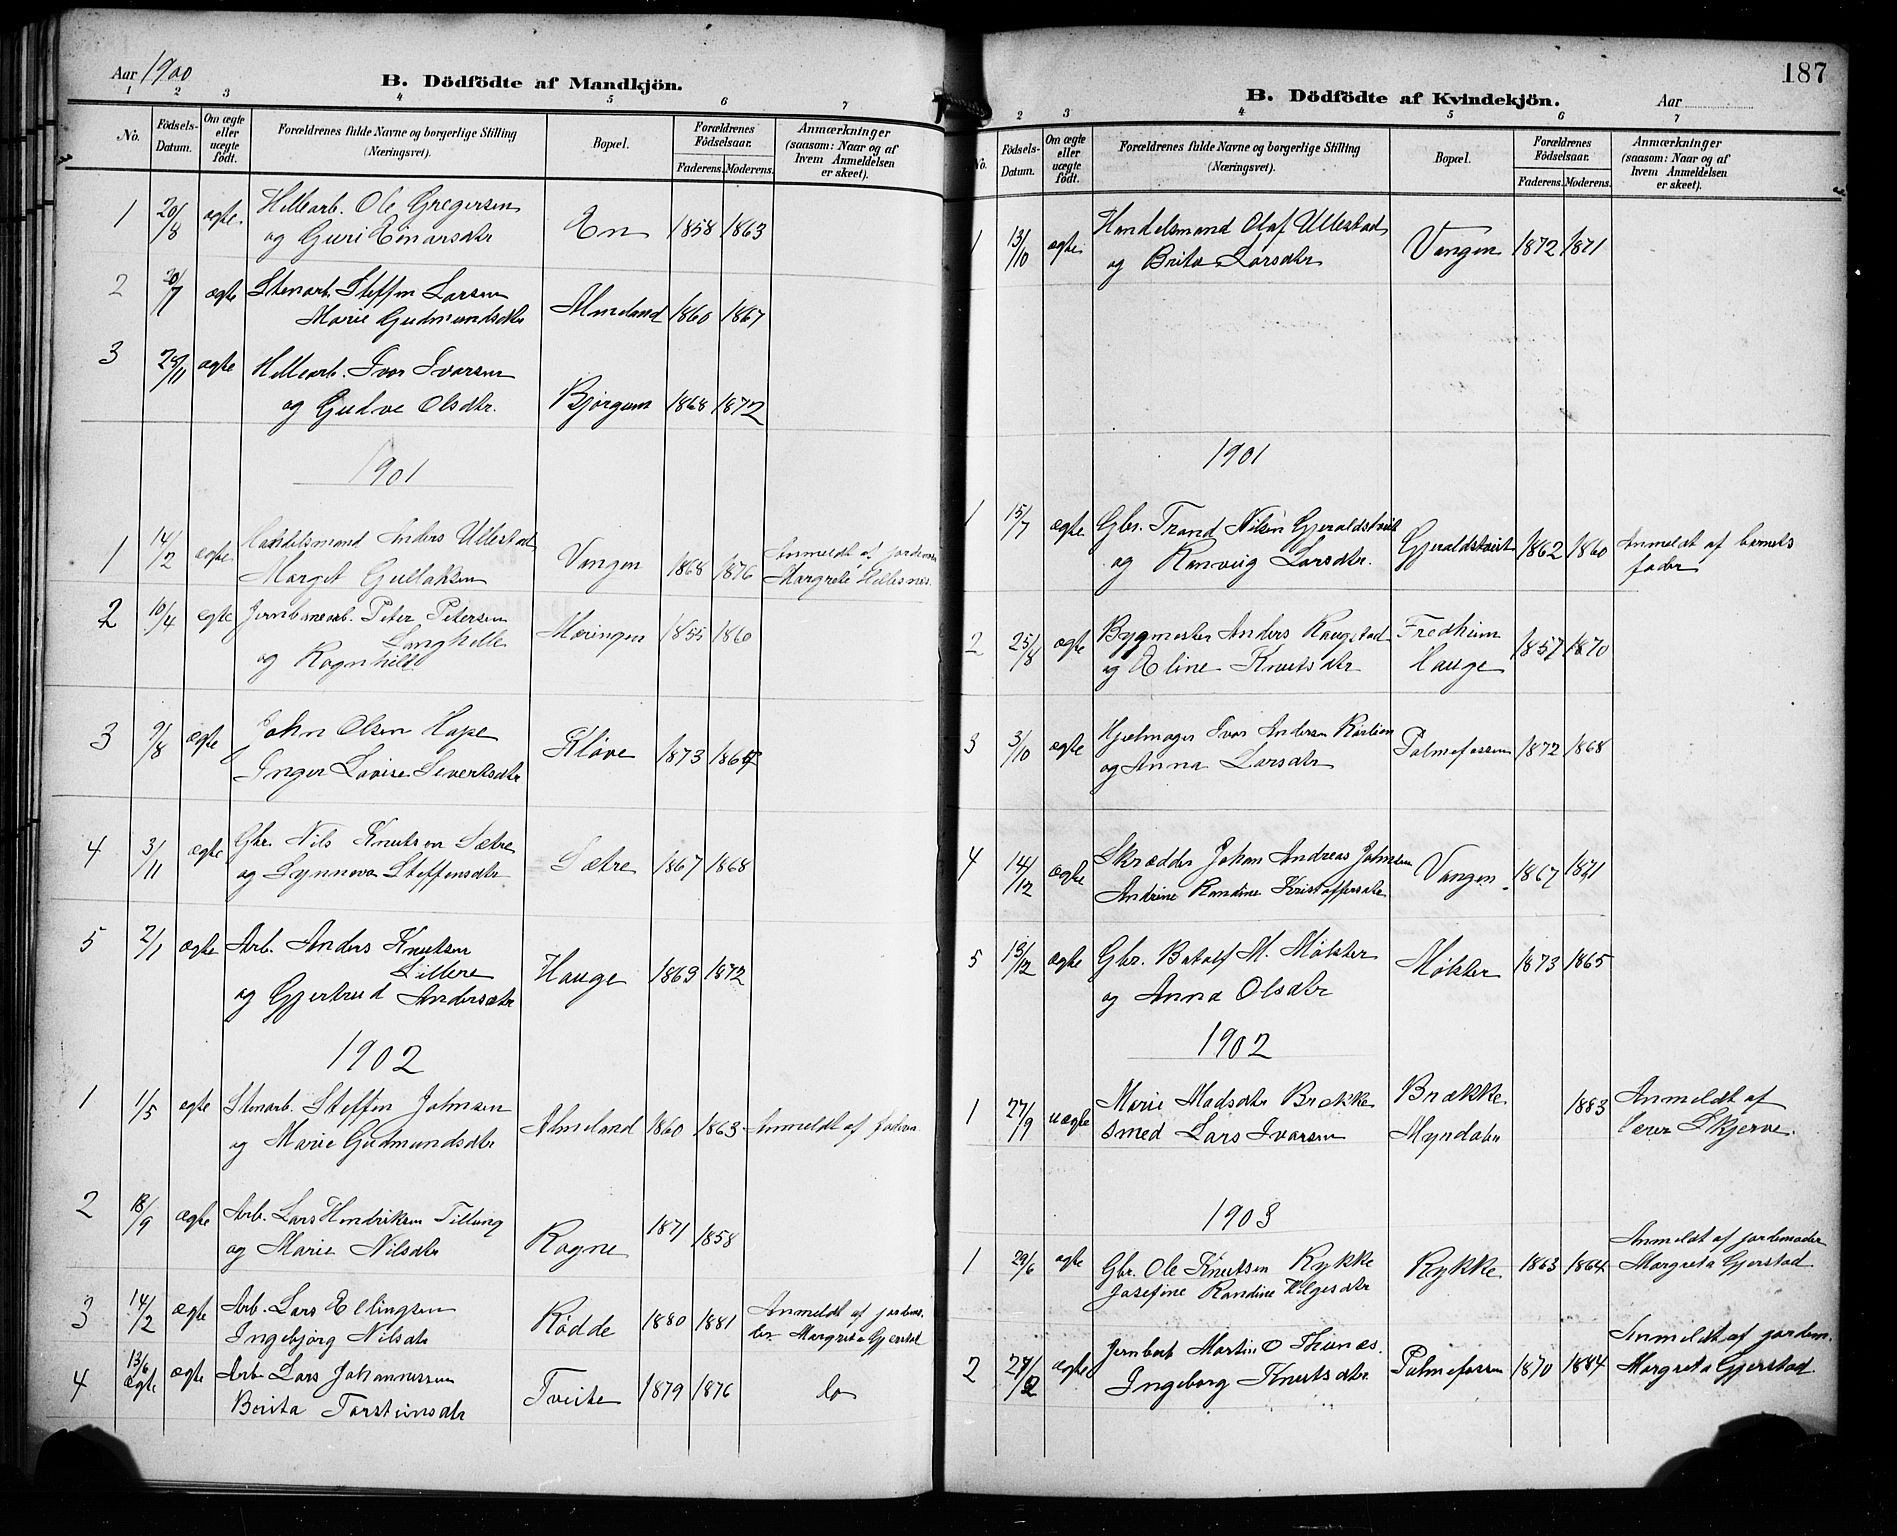 Aar 1900
B. Dödfödte af Mandkjön.
1 2 3 4 5 6 7
No. Födsels-Datum. Om ægte eller uægte födt. Forældrenes fulde Navne og borgerlige Stilling (Næringsvei). Bopæl. Forældrenes Födselsaar. Faderens. Moderens. Anmærkninger (saasom: Naar og af hvem Anmeldelsen er skeet).
1 20/8 ægte Hellearb. Ole Gregersen
og Guri Einarsdtr En 1858 1863
2 20/7 ægte Stenarb. Steffen Larsen
Marie Gudmundsdtr Almeland 1860 1867
3 28/11 ægte Hellearb. Ivar Ivarsen
og Gudve Olsdtr. Bjørgum 1868 1872
1901
1 14/2 ægte Handelsmand Anders Ullestad
Marget Gullaksen Vangen 1868 1876 Anmeldt af jordemor
Margrete Hellesnes
2 10/4 ægte Jernbanearb. Peter Petersen
Langhelle
og Ragnhild Mæringen 1855 1860
3 9/8 ægte John Olsen Hape
Inger Lovise Sivertsdtr Kløve 1873 1864
4 3/11 ægte Gbr. Nils Knutson Sætre
og Synneva Steffensdtr Sætre 1867 1868
5 2/1 ægte Arb. Anders Knutsen
Lillere
og Gjertrud Andersdtr Hauge 1869 1872
1902
1 1/5 ægte Stenarb. Steffen Johnsen
og Marie Gudmundsdtr Almeland 1860 1863 Anmeldt af faderen
2 18/9 ægte Arb. Lars Hendriksen Tillung
og Marie Nilsdtr Rogne 1871 1858
3 14/2 ægte Arb. Lars Ellingsen
Ingebjørg Nilsdtr Rødde 1880 1881 Anmeldt af jordemo-
der Margreta Gjerstad
4 13/6 ægte ægte Arb. Lars Johannessen
Berita Torsteinsdtr Tveite 1879 1876 do
187
B. Dödfödte af Kvindekjön.
Aar
2 3 4 5 6 7
No. Födsels-Datum. Om ægte eller uægte födt. Forældrenes fulde Navne og borgerlige Stilling (Næringsvei). Bopæl. Forældrenes Födselsaar. Faderens. Moderens. Anmærkninger (saasom: Naar og af hvem Anmeldelsen er skeet).
1 13/10 ægte Handelsmand Olaf Ullestad
og Brita Larsdtr Vangen 1872 1871
1901
1 15/7 ægte Gbr. Trond Nilsen Gjeraldstveit
og Ranveig Larsdtr. Gjeraldstveit 1862 1860 Anmeldt af barnets
fader
2 25/8 ægte Bygmester Anders Raugstad
og Eline Knutsdtr Fredheim
Hauge 1857 1870
3 3/10 ægte Hjulmager Ivar Andersen Rørlien
og Anna Larsdtr Palmefossen 1872 1868
4 14/12 ægte Skrædder Johan Andreas Johnsen
Andrine Randine Kristoffersdtr Vangen 1867 1871
5 13/12 ægte Gbr. Botolf M. Mølster
og Anna Olsdtr Mølster 1873 1865
1902
1 27/9 uægte Marie Madsdtr Brække
Smed Lars Ivarsen Brække
Myndalen 1883 Anmeldt af
lærer Skjerve.
1903
1 29/6 ægte Gbr. Ole Knutsen Rykke
Josefine Randine Helgesdtr Rykke 1863 1864 Anmeldt af jordemoder
Margreta Gjerstad
2 27/2 ægte Jernbarb Martin O Thunes.
Ingeborg Knutsdtr Palmefossen 1870 1884 Anmeldt af jordem.
Margreta Gjerstad